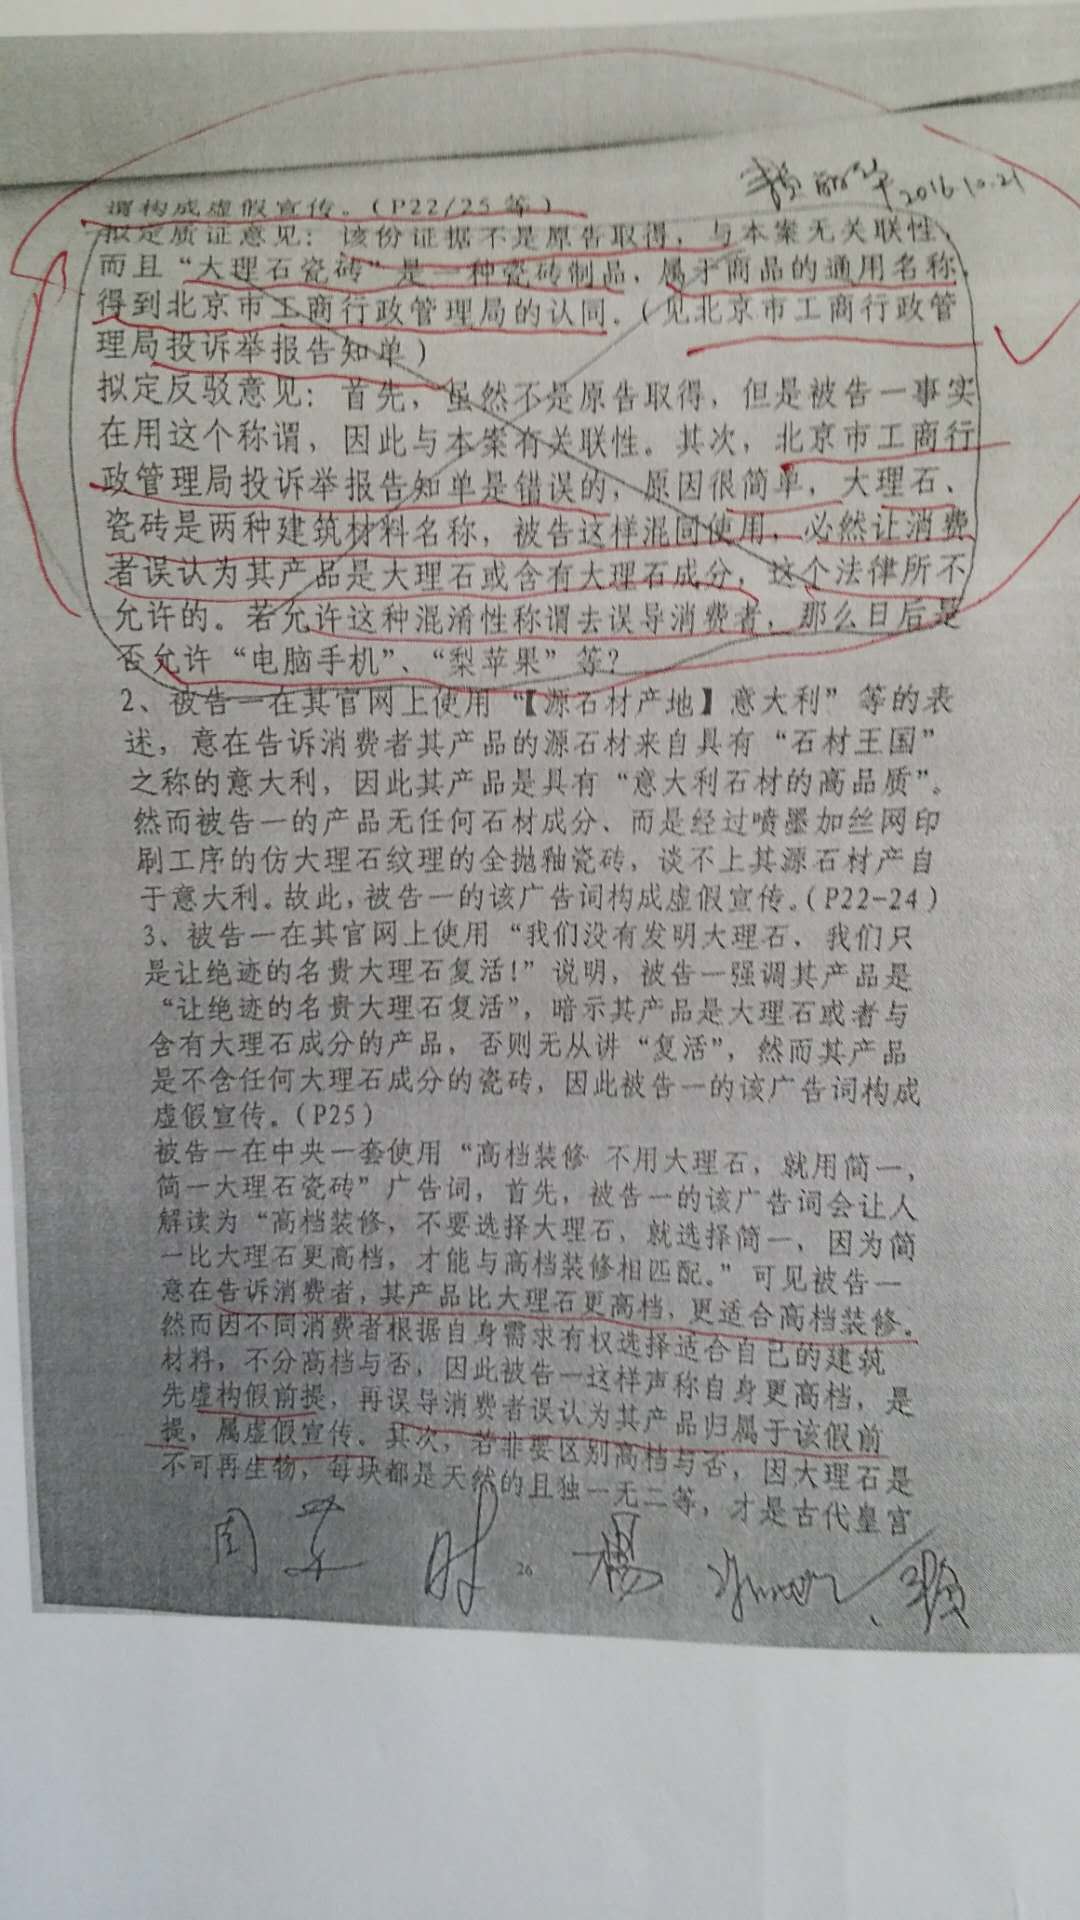 2016.10.21
谓构成虚假宣传。(P22/25等)
拟定质证意见：该份证据不是原告取得，与本案无关联性，
而且“大理石瓷砖”是一种瓷砖制品，属于商品的通用名称，
得到北京市工商行政管理局的认同。(见北京市工商行政管
理局投诉举报告知单)
拟定反驳意见：首先，虽然不是原告取得，但是被告一事实
在用这个称谓，因此与本案有关联性。其次，北京市工商行
政管理局投诉举报告知单是错误的，原因很简单，大理石、
瓷砖是两种建筑材料名称，被告这样混同使用，必然让消费
者误认为其产品是大理石或含有大理石成分，这个法律所不
允许的。若允许这种混淆性称谓去误导消费者，那么日后是
否允许“电脑手机”、“梨苹果”等？
2、被告一在其官网上使用“【源石材产地】意大利”等的表
述，意在告诉消费者其产品的源石材来自具有“石材王国”
之称的意大利，因此其产品是具有“意大利石材的高品质”。
然而被告一的产品无任何石材成分、而是经过喷墨加丝网印
刷工序的仿大理石纹理的全抛釉瓷砖，谈不上其源石材产自
于意大利。故此，被告一的该广告词构成虚假宣传。(P22-24)
3、被告一在其官网上使用“我们没有发明大理石，我们只
是让绝迹的名贵大理石复活！”说明，被告一强调其产品是
“让绝迹的名贵大理石复活”，暗示其产品是大理石或者与
含有大理石成分的产品，否则无从讲“复活”，然而其产品
是不含任何大理石成分的瓷砖，因此被告一的该广告词构成
虚假宣传。(P25)
被告一在中央一套使用“高档装修 不用大理石，就用简一，
简一大理石瓷砖”广告词，首先，被告一的该广告词会让人
解读为“高档装修，不要选择大理石，就选择简一，因为简
一比大理石更高档，才能与高档装修相匹配。”可见被告一
意在告诉消费者，其产品比大理石更高档，更适合高档装修。
然而因不同消费者根据自身需求有权选择适合自己的建筑
材料，不分高档与否，因此被告一这样声称自身更高档，是
先虚构假前提，再误导消费者误认为其产品归属于该假前
提，属虚假宣传。其次，若非要区别高档与否，因大理石是
不可再生物，每块都是天然的且独一无二等，才是古代皇宫
周 杨
26